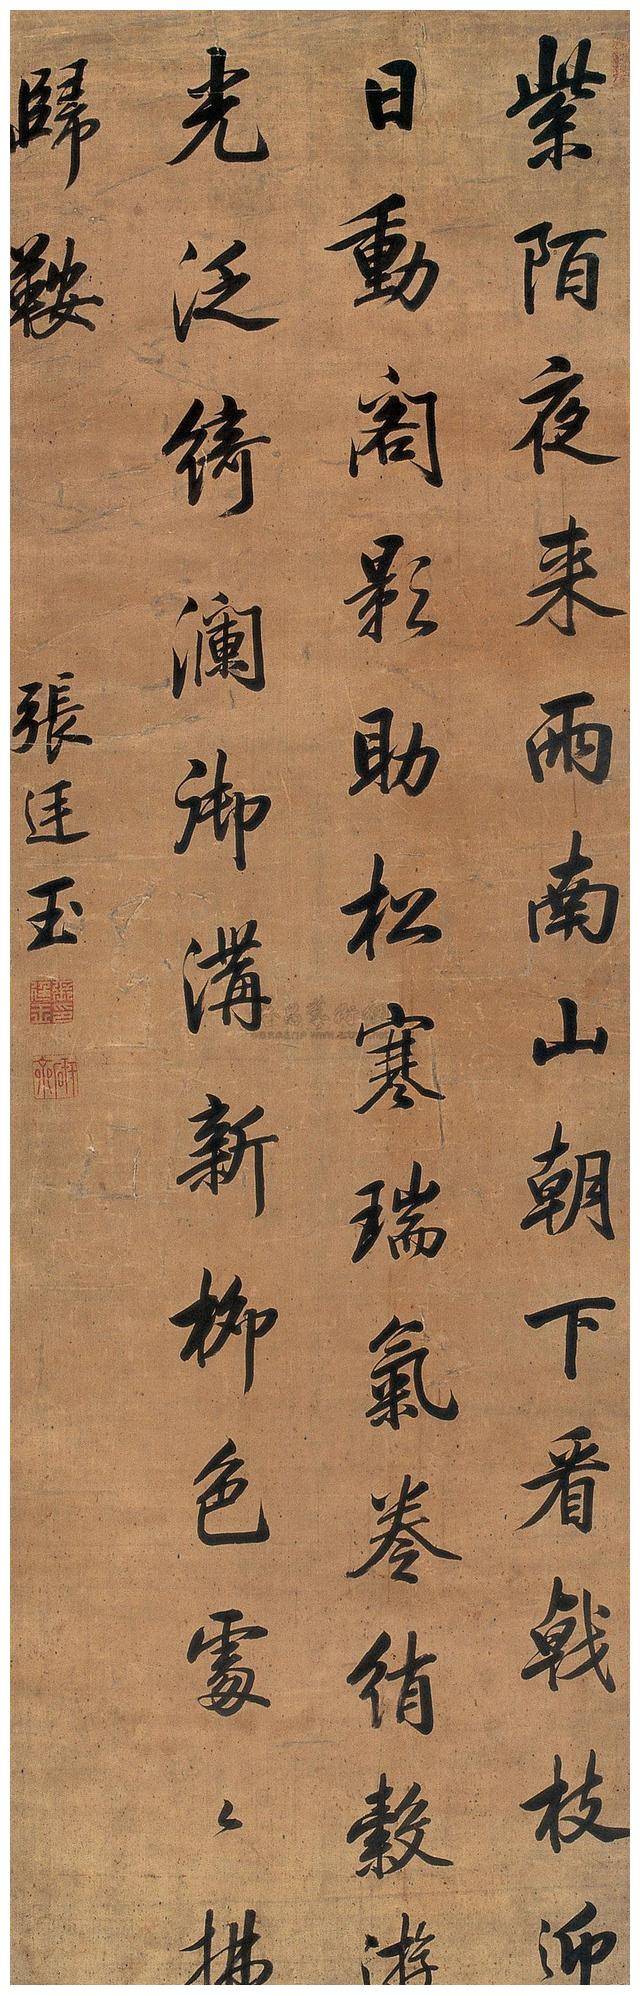 紫陌夜来雨南山朝下看戟枝迎
日動閣影助松寒瑞氣卷綃縠游
光泛綺瀾御溝新柳色處〻拂
歸鞍
張廷玉